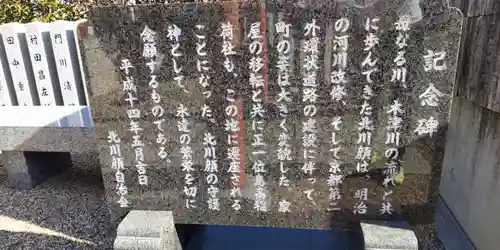 記念碑
母なる川、木津川の流れと共
に歩んできた北川顔は、明治
の河川改修、そして京都第二
外環状道路の建設に伴って
町の姿は大きく変貌した。家
屋の移転と共に正一位島 稲
荷社も、この地に遷座される
ことになった。北川顔の守護
神として 永遠の繁栄を切に
念願するものである。
平成十四年五月吉日
北川顔自治会
門川 清
竹田昌左
田中